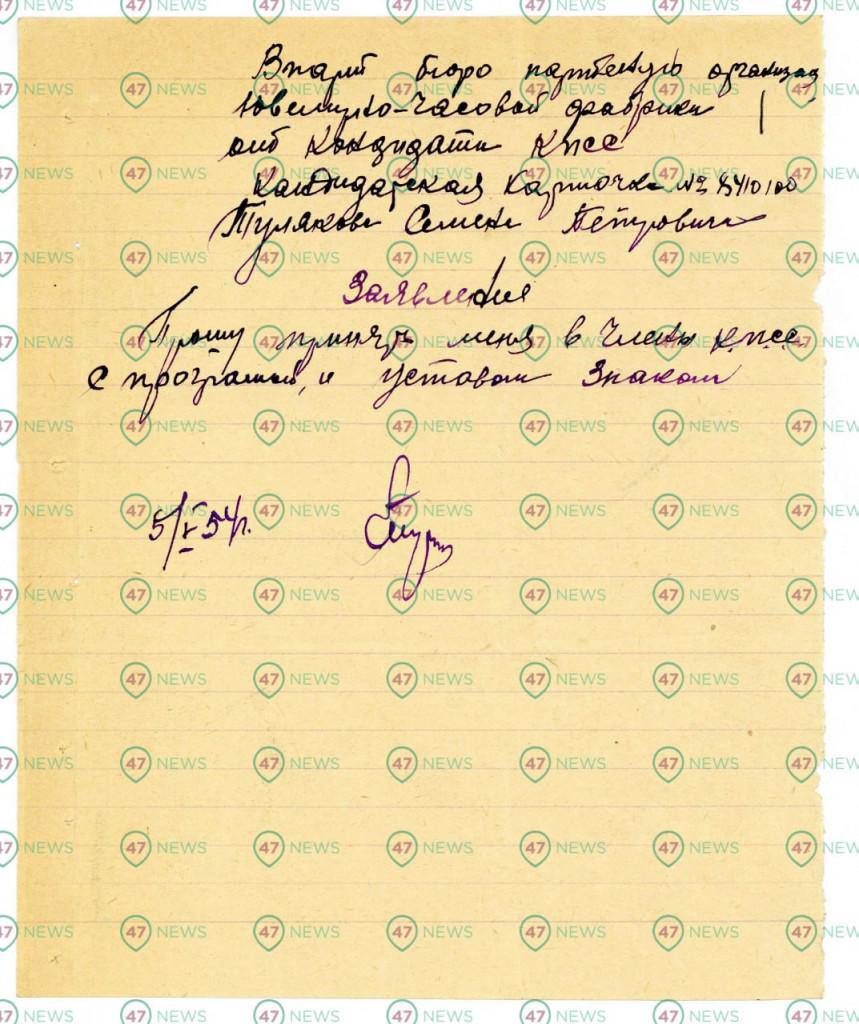 В парт бюро организац
Ювелирно-Часовой фабрики
от Кандидата КПСС
Кандидатская Карточка №
Тулякова Семена Петровича
Заявления
Прошу принять меня в члены КПСС.
С програмой, и уставом Знаком
5/V 54 г.
47 NEWS